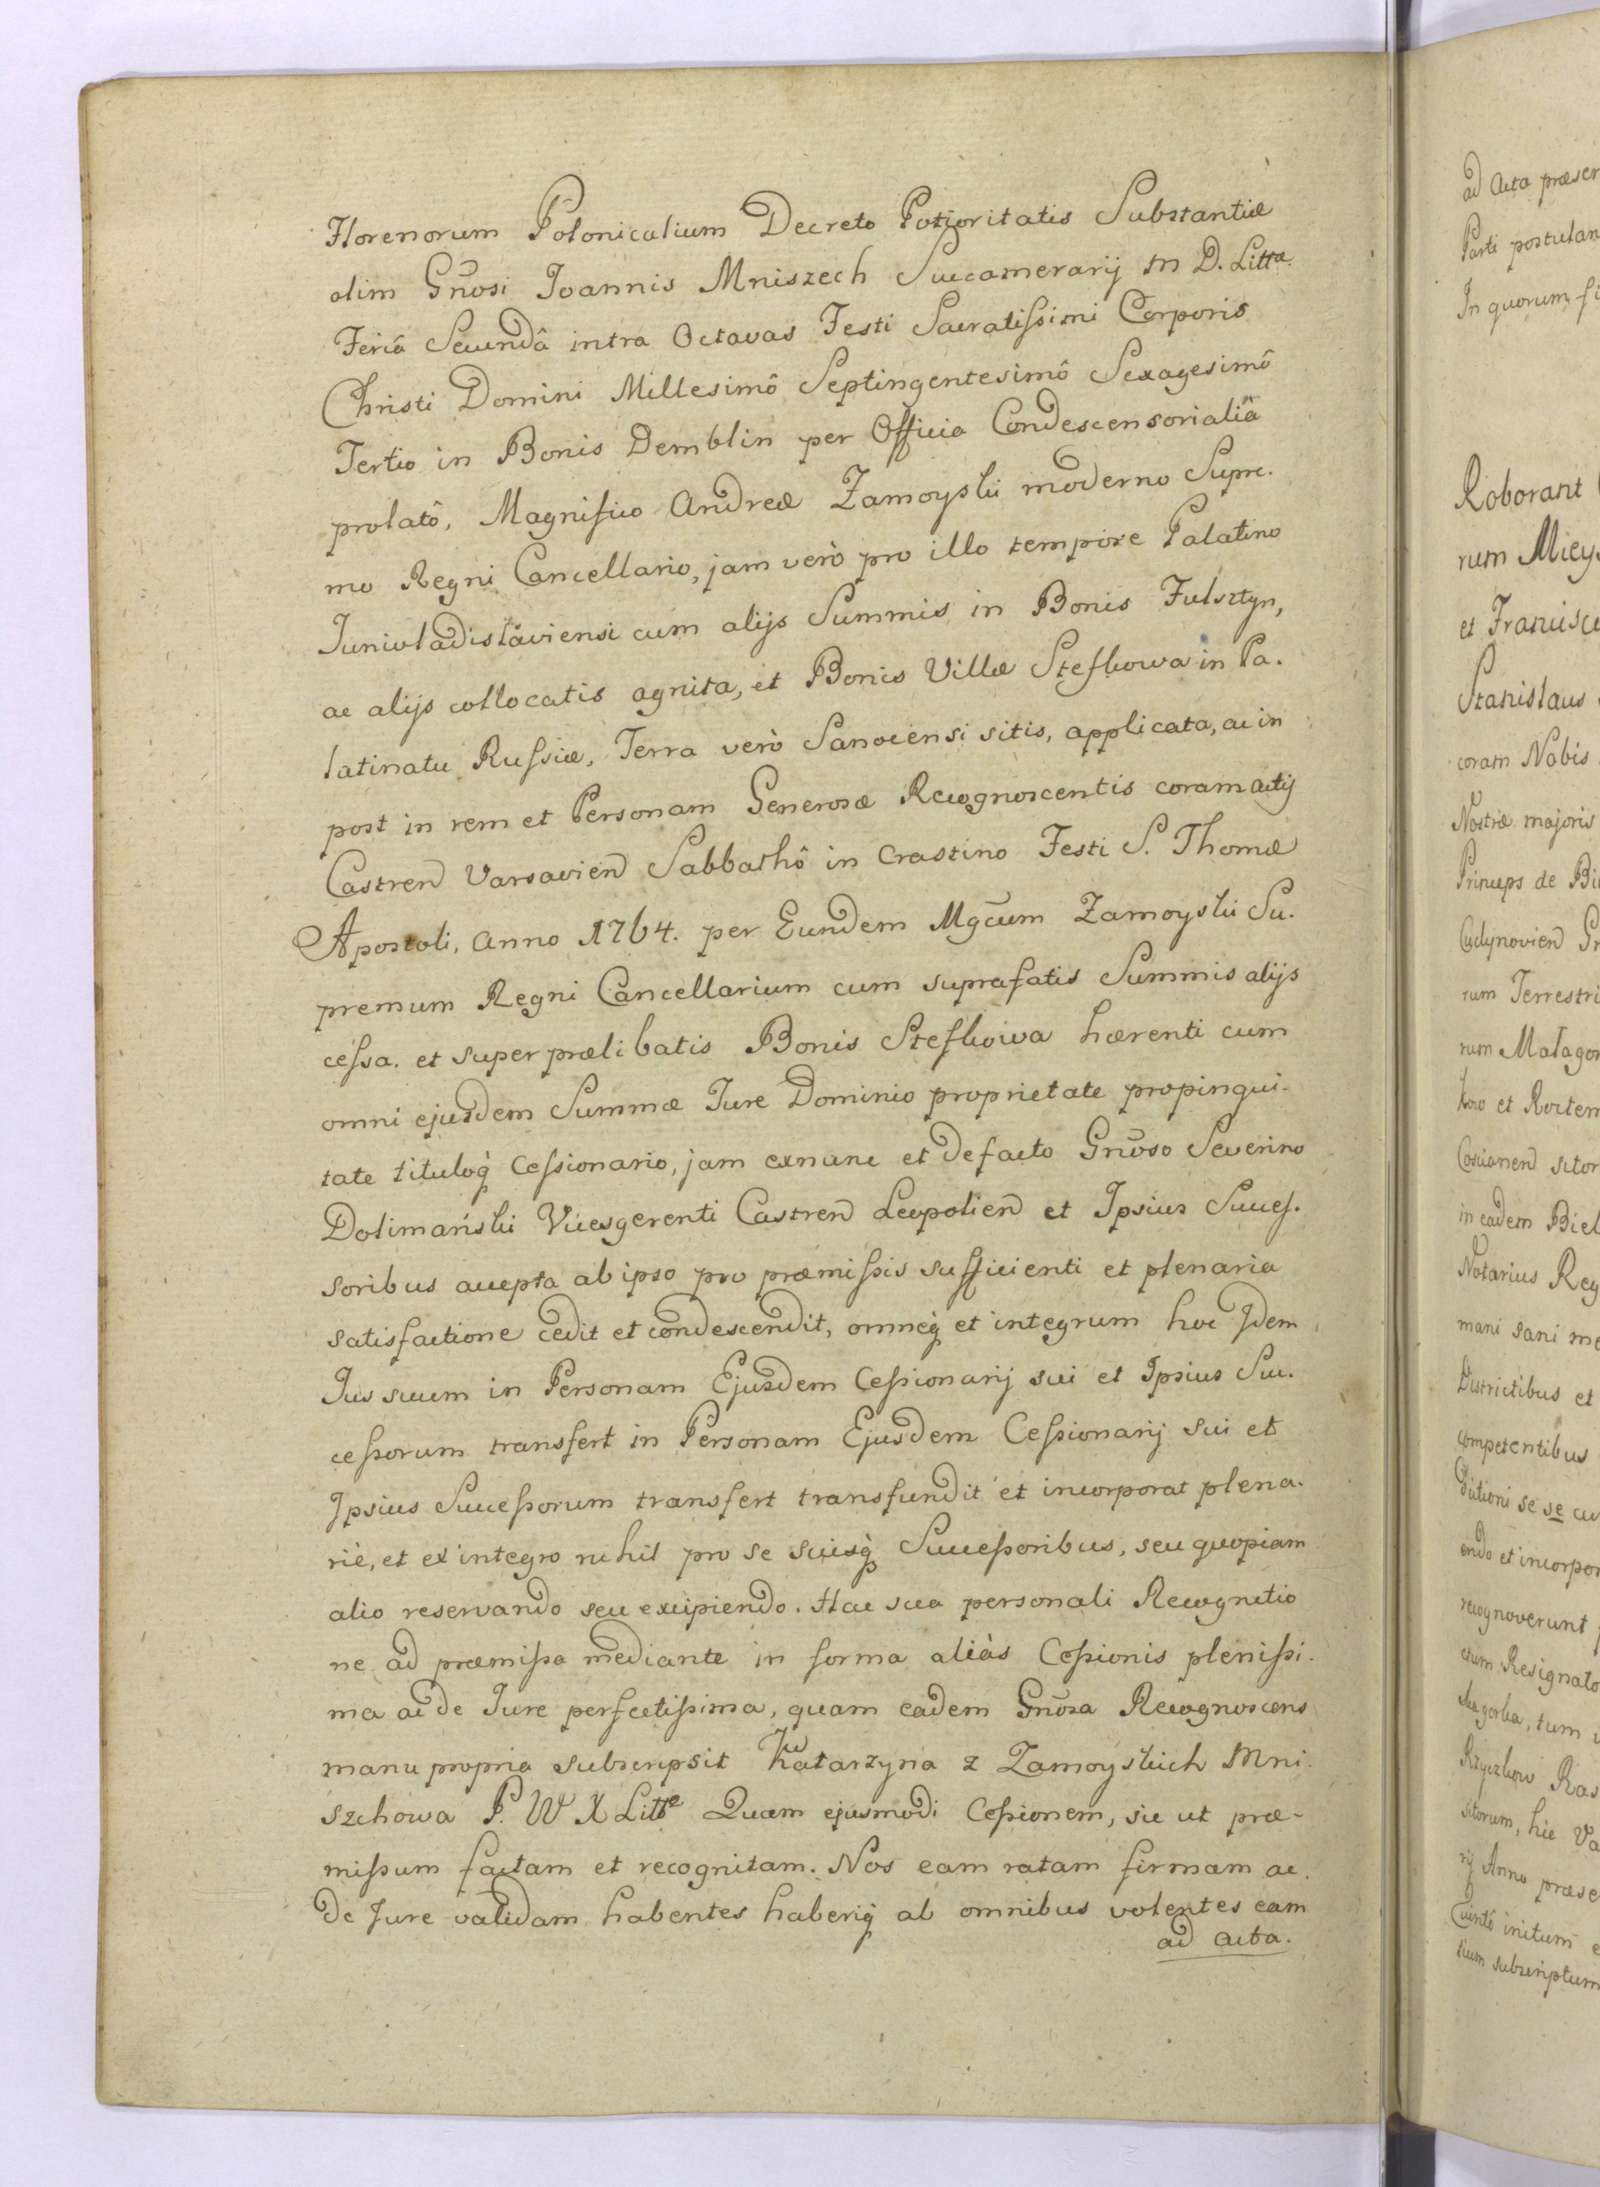 Florenorum Polonicalium Decreto Potioritatis Substantiæ
olim Gnosi Joannis Mniszech Succamerarij M D. Littæ
Feriâ Secundâ intra Octavas Festi Sacratissimi Corporis
Christi Domini Millesimô Septingentesimô Sexagesimô
Tertio in Bonis Demblin per Officia Condescensorialia
prolatô, Magnifico Andreæ Zamoyski moderno Supre-
mo Regni Cancellario, jam verò pro illo tempore Palatino
Juniwladislaviensi cum alijs Summis in Bonis Fulsztyn,
ac alijs collocatis agnita, et Bonis Villæ Stefkowa in Pa-
latinatu Russiæ, Terra verò Sanocensi sitis, applicata, ac in
post in rem et Personam Generosæ Recognoscentis coram actij
Castren Varsavien Sabbathô in Crastino Festi S. Thomæ
Apostoli, Anno 1764. per Eundem Mgcum Zamoyski Su-
premum Regni Cancellarium cum suprafatis Summis alijs
cessa. et super prælibatis Bonis Stefkowa hærenti cum
omni ejusdem Summæ Jure Dominio proprietate propinqui-
tate tituloq Cessionario, jam exnunc et defacto Gnoso Severino
Dolimański Vicesgerenti Castren Leopolien et Ipsius Succes-
soribus accepta ab ipso pro præmissis sufficienti et plenaria
satisfactione cedit et condescendit, omneq et integrum hoc Idem
Jus suum in Personam Ejusdem Cessionarij sui et Ipsius Suc-
cessorum transfert in Personam Ejusdem Cessionarij sui et
Ipsius Successorum transfert transfundit et incorporat plena-
riè, et ex integro nihil pro se suisq Successoribus, seu quopiam
alio reservando seu excipiendo. Hac sua personali Recognitio
ne ad præmissa mediante in forma aliàs Cessionis plenissi-
ma ac de Jure perfectissima, quam eadem Gnosa Recognoscens
manu propria subscripsit Katarzyna z Zamoyskich Mni-
szchowa P. W X Litte Quam ejusmodi Cessionem, sic ut præ-
missum factam et recognitam. Nos eam ratam firmam ac
de Jure validam habentes haberiq ab omnibus volentes eam
ad acta.
ad acta
Parti
In quorum
Roborant
rum
et
Stanislaus
coram Nobis
Nostræ majoris
Princeps de
rum
rum
et
in eadem
Notarius
mani sani
Districtibus et
competentibus
se se
endo et
recognoverunt
tum
hic
Anno
initum